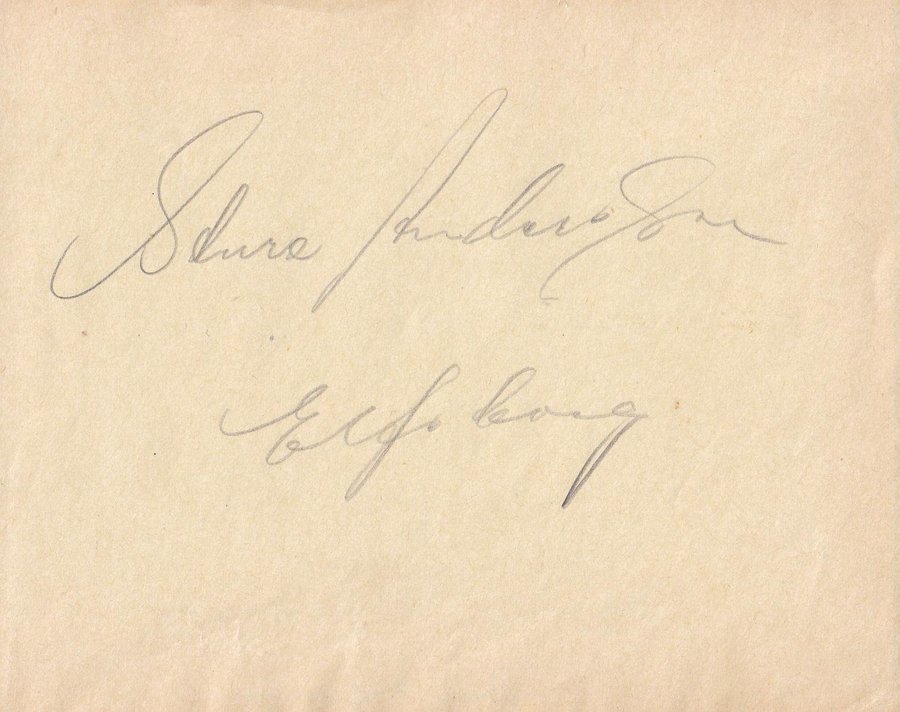 Sture Andersson
Elfsborg